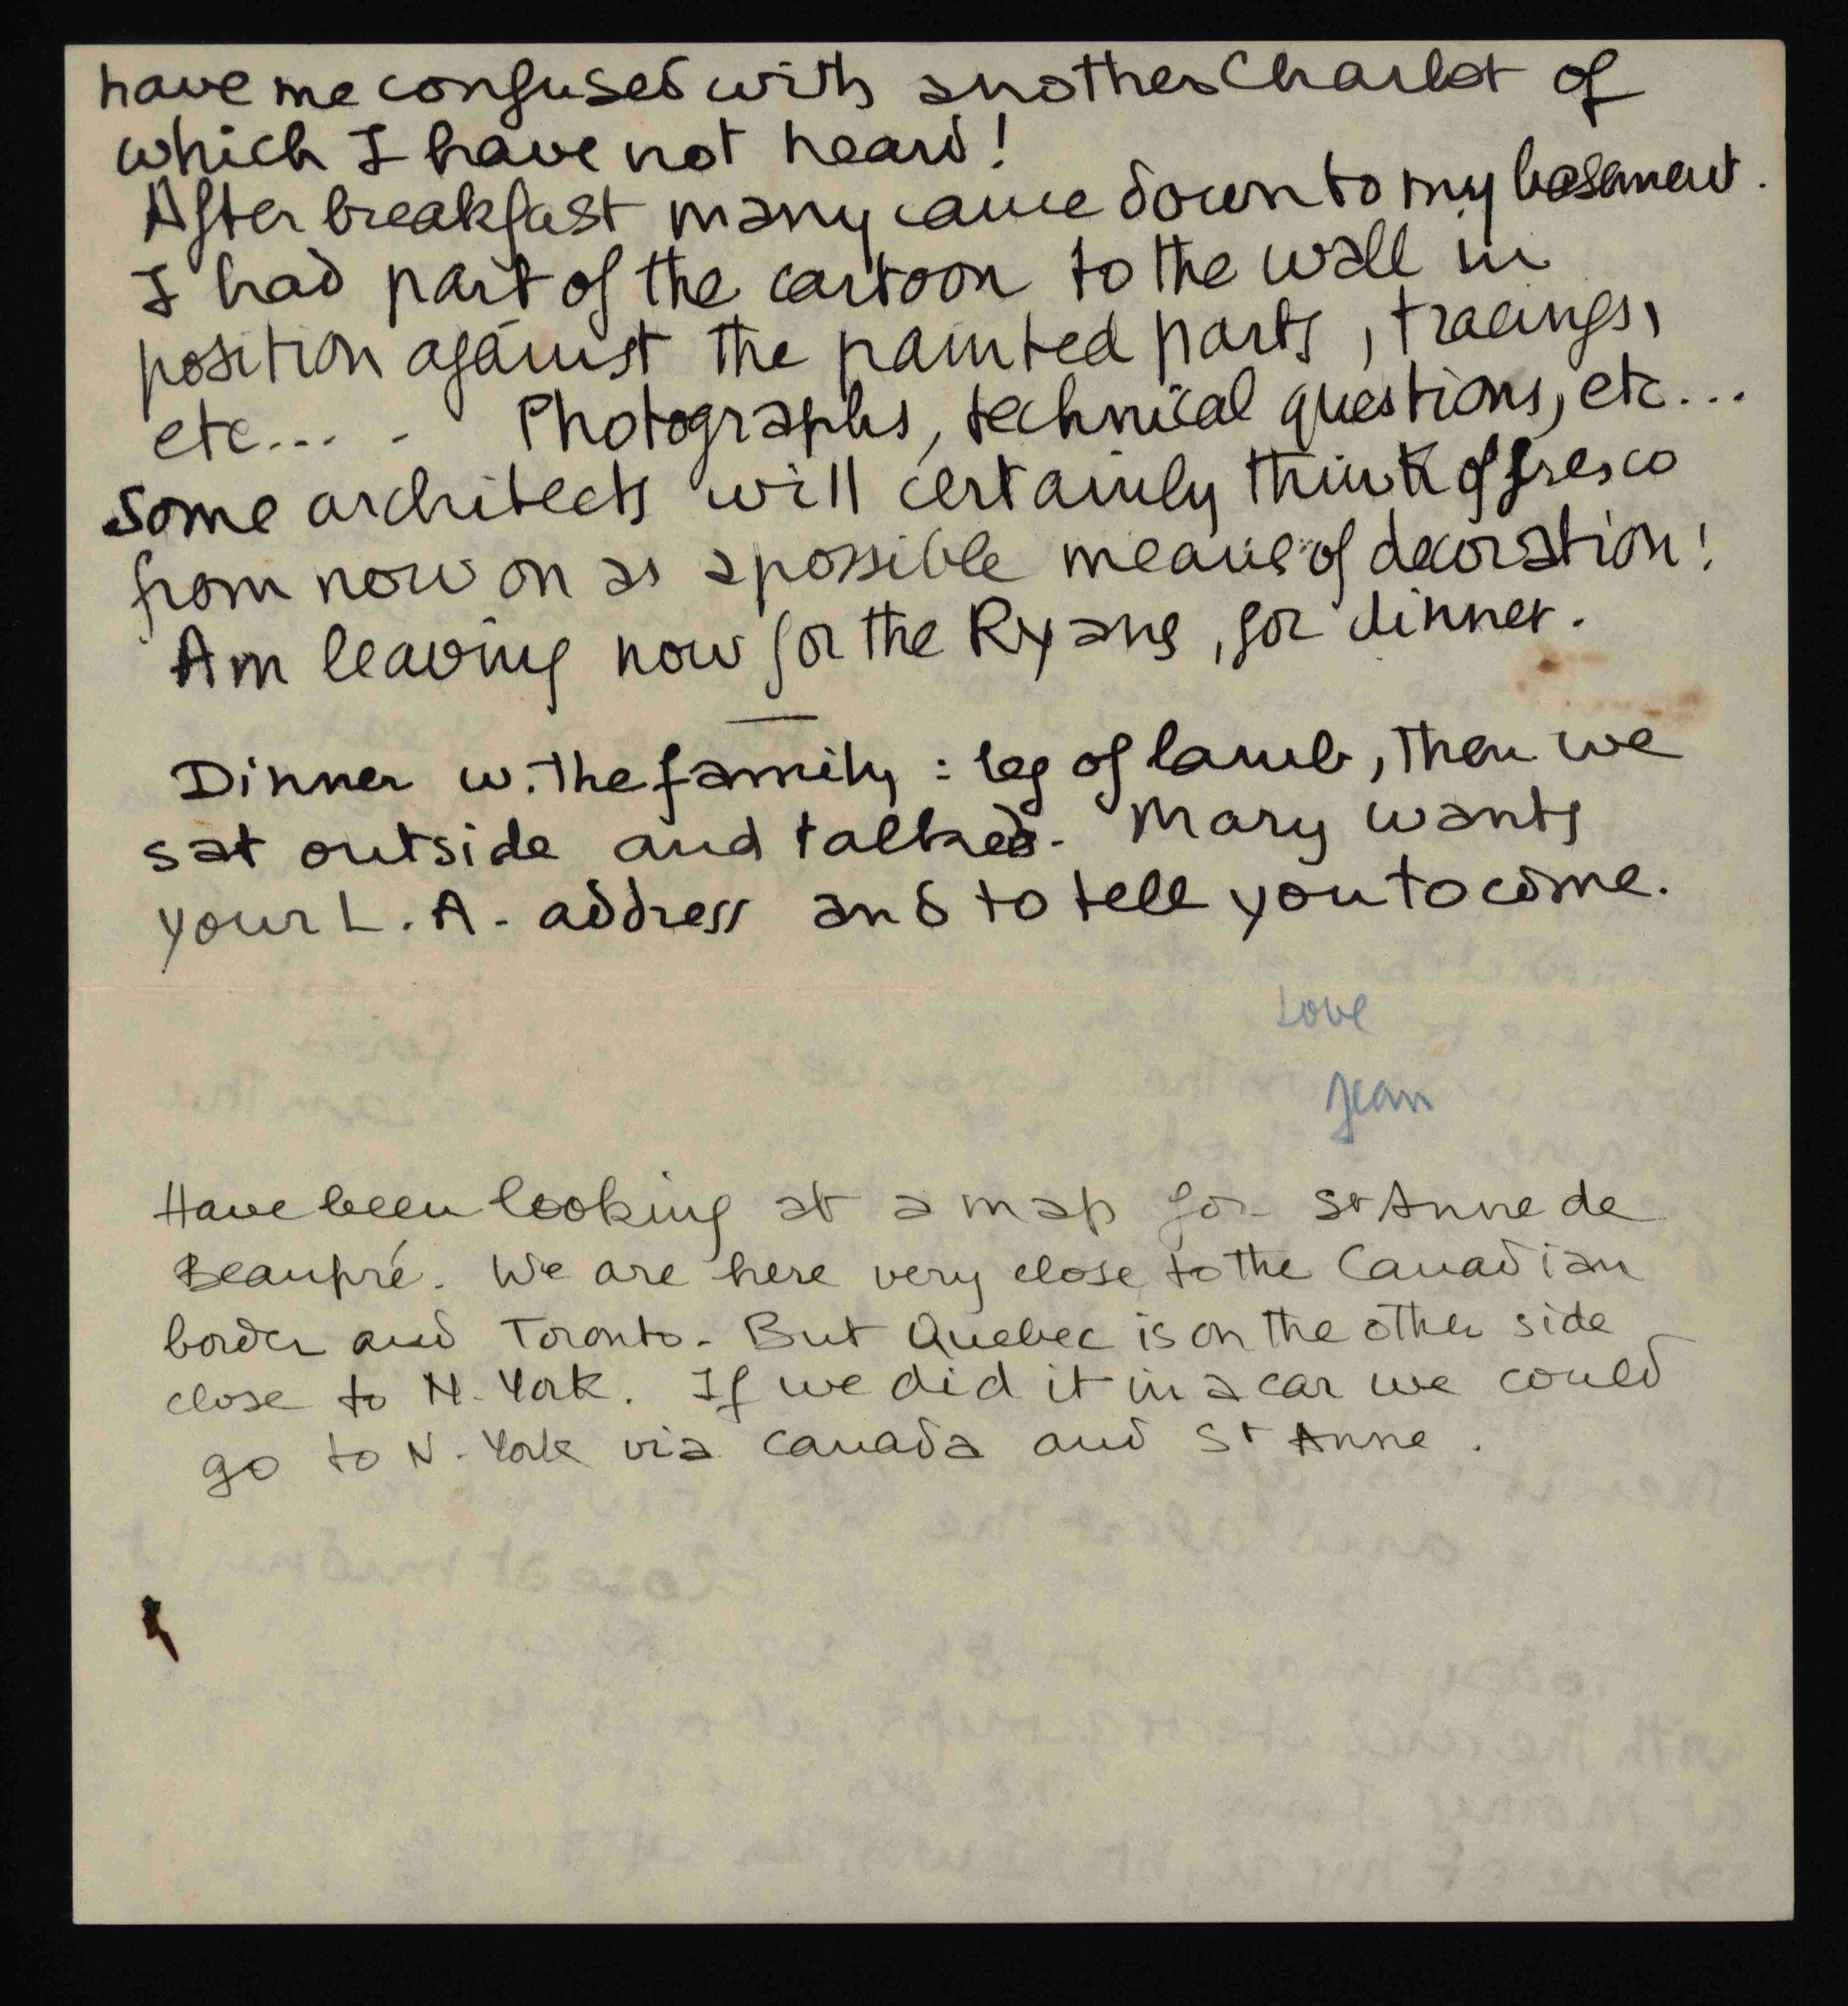 have me confused with another Charlot of
which I have not heard!
After breakfast many came down to my basement.
I had part of the cartoon to the wall in
position against the painted parts, tracings,
etc... . Photographs, technical questions, etc...
Some architects will certainly think of fresco
from now on as a possible means of decoration!
Am leaving now for the Ryans, for dinner.
Dinner w. the family : leg of lamb, then we
sat outside and talked. Mary wants
your L.A. address and to tell you to come.
Love
Jean
Have been looking at a map for St Anne de
Beaupré. We are here very close to the Canadian
border and Toronto. But Quebec is on the other side
close to N. York. If we did it in a car we could
go to N. York via Canada and St Anne.